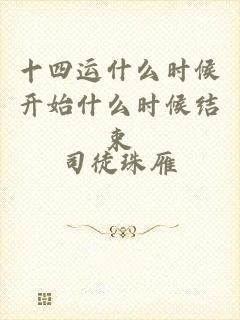 十四运什么时候
开始什么时候结
束
司徒珠雁